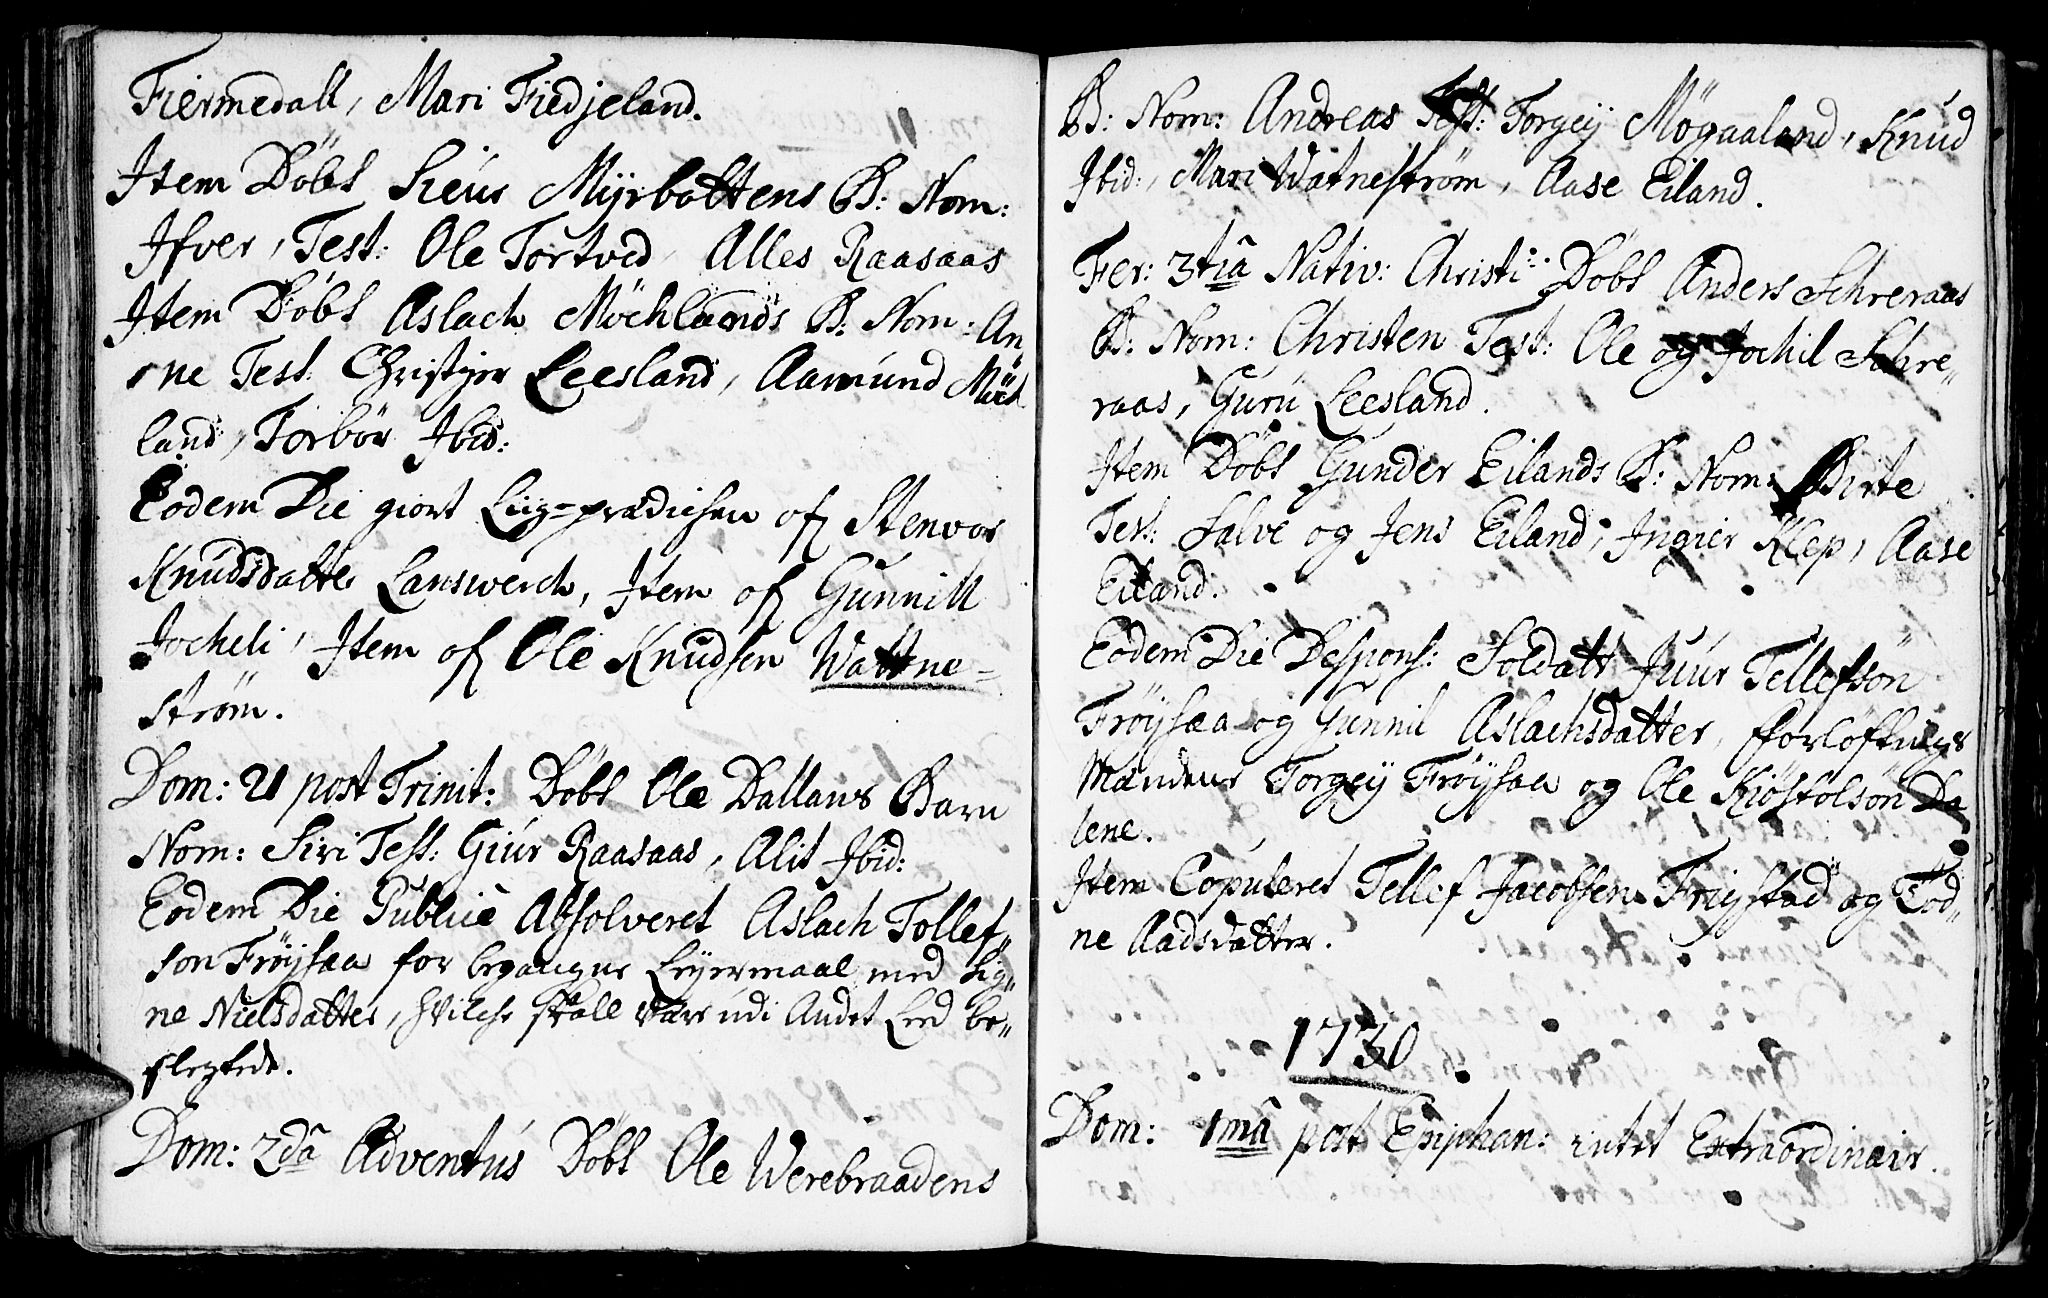 Fiermedall, Mari Fiedjeland.
Item Döbt Sieur Myrbottens B: Nom:
Ifver, Test: Ole Tortved, Alles Raasaas
Item Döbt Aslach Möchlands B: Nom: An
ne Test: Christjer Leesland, Aamund Möch
land, Torbör Ibid:
Eodem Die giort Liig=prædichen of Stenvor
Knudsdatter Lanswerch, Item of Gunnill
Jocheli, Item of Ole Knudsen Wattne=
strøm.
Dom: 21 post Trinit: Döbt Ole Dallans Barn
Nom: Siri Test: Giur Raasaas, Alit Ibid:
Eodem Die Publicè Absolveret Aslach Tollef„
son Frøysaa for begangne Leyermaal med Sig„
ne Nielsdatter, hvilche skall være udi Andet Leed be„
slegtede.
Dom: 2dâ Adventus Döbt Ole Werebraadens
B: Nom: Andreas Test: Torgey Mögaaland, Knud
Ibid:, Mari Watnestrøm, Aase Eiland.
Fer: 3tiâ Nativ: Christi: Döbt Anders Schreraas
B: Nom: Christen Test: Ole og Jochil Schre„
raas, Guru Leesland.
Item Döbt Gunder Eilands B: Nom: Birte
Test: Salve og Jens Eiland, Ingier Klep, Aase
Eiland.
Eodem Die Despons: Soldatt Juur Tellefsön
Frøysaa og Gunnil Aslachsdatter, fforlöftnings
Mændene Torgey Frøysaa og Ole Kiöstolsön Da
lene.
Item Copuleret Tellef Jacobsen Frøystad og Tod„
ne Aadsdatter.
1730
Dom: 1mâ post Epiphan: intet Extraordinair.